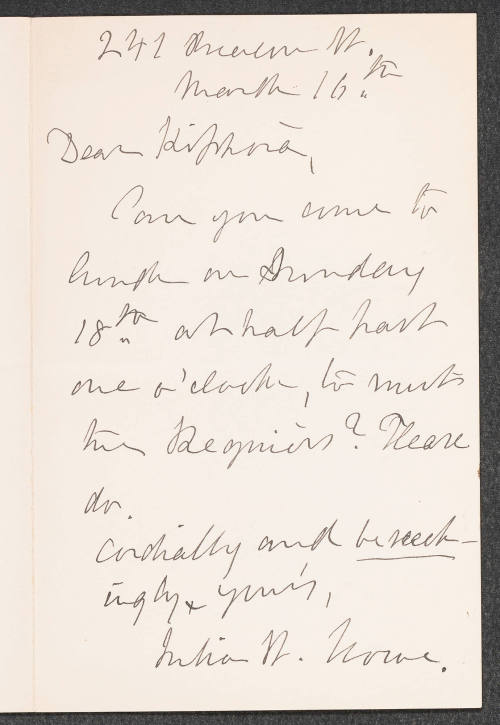 241 Beacon St.
March 16th
Dear
Can you come to
lunch on Sunday
18th at half past
one o'clock, to meet
the Regniers? Please
do.
Cordially and beseech-
ingly yours,
Julia W. Howe.